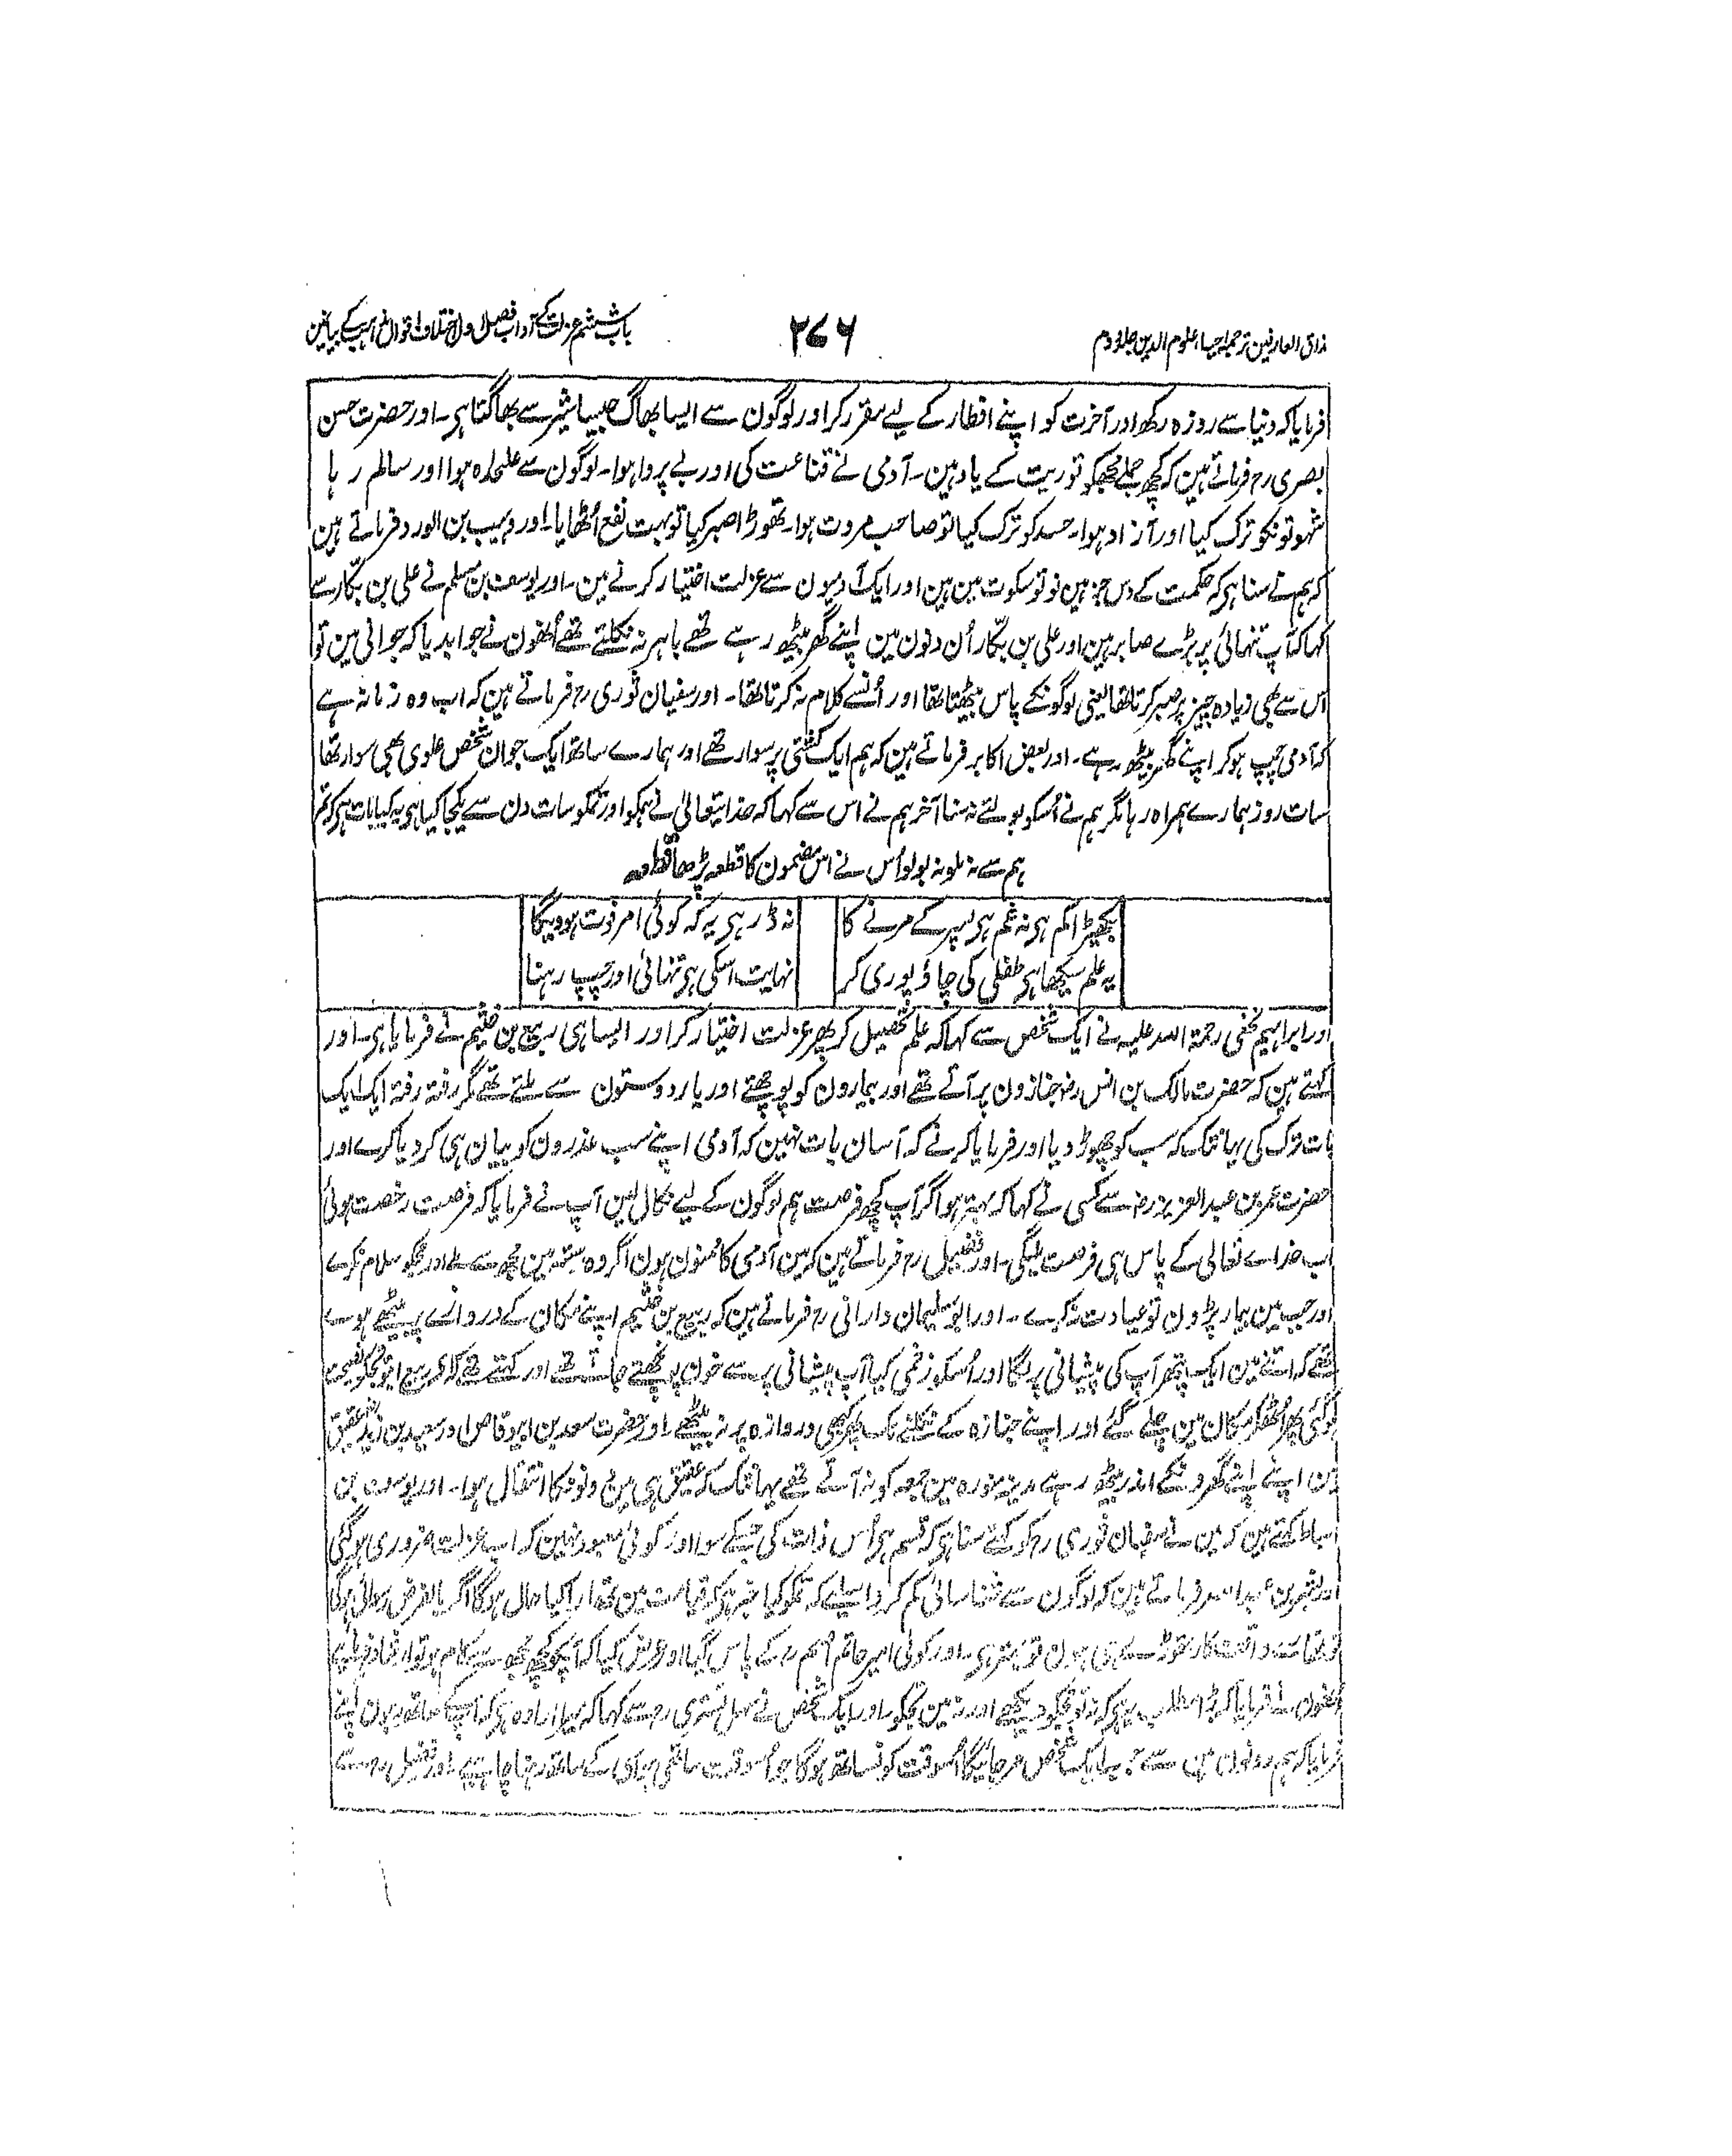 مذاق العارفین ترجمہ احیاء علوم الدین جلد دوم
۲۷۶
باب ششم عزلت کے آداب فصل اول اختلاف اقوال مذاہب کے بیان مین
فرمایا کہ دنیا سے روزہ رکھ اور آخرت کو اپنے افطار کے لیے مقرر کر اور لوگون سے ایسا بھاگ جیسا شیر سے بھاگتا ہی۔ اور حضرت حسن
بصری رح فرماتے ہین کہ کچھ جملے مجھکو توریت کے یاد ہین۔ آدمی نے قناعت کی اور بے پروا ہوا۔ لوگون سے علیحدہ ہوا اور سالم رہا
شہوتونکو ترک کیا اور آزاد ہوا۔ حسد کو ترک کیا تو صاحب مروت ہوا۔ تھوڑا صبر کیا تو بہت نفع اُٹھایا۔ اور وہیب بن الورد فرماتے ہین
کہ ہم نے سنا ہی کہ حکمت کے دس جز ہین نو تو سکوت مین ہین اور ایک آدمیون سے عزلت اختیار کرنے مین۔ اور یوسف بن مسلم نے علی بن بکّار سے
کہا کہ آپ تنہائی پر بڑے صابر ہین اور علی بن بکّار اُن دنون مین اپنے گھر بیٹھ رہے تھے باہر نہ نکلتے تھے اُنھون نے جواب دیا کہ جوانی مین تو
اس سے بھی زیادہ چیز پر صبر کرتا تھا یعنی لوگونکے پاس بیٹھتا تھا اور اُنسے کلام نہ کرتا تھا۔ اور سفیان ثوری رح فرماتے ہین کہ اب وہ زمانہ ہے
کہ آدمی چپ ہو کر اپنے گھر بیٹھ رہے۔ اور بعض اکابر فرماتے ہین کہ ہم ایک کشتی پر سوار تھے اور ہمارے ساتھ ایک جوان شخص علوی بھی سوار تھا
سات روز ہمارے ہمراہ رہا مگر ہم نے اُسکو بولتے نہ سنا آخر ہم نے اس سے کہا کہ خدایتعالیٰ نے ہمکو اور تمکو سات دن سے یکجا کیا ہی یہ کیا بات ہی کہ تم
ہم سے نہ ملو نہ بولو اُس نے اس مضمون کا قطعہ پڑھا قطعہ
بکھیڑا کم ہی نہ غم ہی پسر کے مرنے کا نہ ڈر ہی یہ کہ کوئی امر فوت ہوویگا
یہ علم سیکھا ہی طفلی کی چاؤ پوری کر نہایت اسکی ہی تنہائی اور چپ رہنا
اور ابراہیم نخعی رحمۃ اللہ علیہ نے ایک شخص سے کہا کہ علم تحصیل کر پھر عزلت اختیار کر اور ایسا ہی ربیع بن خثیم نے فرمایا ہی۔ اور
کہتے ہین کہ حضرت مالک بن انس رض جنازون پر آتے تھے اور بیمارون کو پوچھتے اور یار دوستون سے ملتے تھے مگر رفتہ رفتہ ایک ایک
بات ترک کی یہانتک کہ سب کو چھوڑ دیا اور فرمایا کرتے کہ آسان بات نہین کہ آدمی اپنے سب عذرون کو بیان ہی کر دیا کرے اور
حضرت عمر بن عبدالعزیز رض سے کسی نے کہا کہ بہتر ہو اگر آپ کچھ فرصت ہم لوگون کے لیے نکال لین آپ نے فرمایا کہ فرصت رخصت ہوئی
اب خداے تعالی کے پاس ہی فرصت ملیگی۔ اور فضیل رح فرماتے ہین کہ مین آدمی کا ممنون ہون اگر وہ رستہ مین مجھ سے ملے اور مجھکو سلام نکرے
اور جب مین بیمار پڑون تو عیادت نکرے۔ اور ابو سلیمان دارانی رح فرماتے ہین کہ ربیع بن خثیم اپنے مکان کے دروازے پر بیٹھے ہوے
تھے کہ اتنے مین ایک پتھر آپ کی پیشانی پر لگا اور اُسکو زخمی کیا آپ پیشانی پر سے خون پونچھتے جاتے تھے اور کہتے تھے کہ ای ربیع اب تو تجکو نصیحت
ہوگئی پھر اُٹھکر مکان مین چلے گئے اور اپنے جنازہ کے نکلنے تک پھر کبھی دروازہ پر نہ بیٹھے۔ اور حضرت سعد بن ابی وقاص اور سعید بن زید رض عقیق
مین اپنے اپنے گھرونکے اندر بیٹھ رہے مدینہ منورہ مین جمعہ کو نہ آتے تھے یہانتک کہ عقیق ہی مین دونوکا انتقال ہوا۔ اور یوسف بن
اسباط کہتے ہین کہ مین نے سفیان ثوری رح کو کہتے سنا ہی کہ قسم ہی اُس ذات کی جسکے سوا اور کوئی معبود نہین کہ اب عزلت ضروری ہوگئی
اور بشر بن عبداللہ فرماتے ہین کہ لوگون سے شناسائی کم کر واسلیے کہ تمکو کیا خبر ہی کہ قیامت مین تمھارا کیا حال ہوگا اگر بالفرض رسوائی ہوگی
تو واقف کار تھوڑے ہی ہون تو بہتر ہی۔ اور کوئی امیر حاتم اصم رح کے پاس گیا اور عرض کیا کہ آپکو کچھ مجھ سے کام ہو تو ارشاد فرمایئے
اُنھون نے فرمایا کہ بڑا مطلب یہ ہی کہ نہ تو مجھکو دیکھے اور نہ مین تجکو۔ اور ایک شخص نے سہل تستری رح سے کہا کہ میرا ارادہ ہی کہ آپکے ساتھ رہون اُنھے
فرمایا کہ ہم دونون مین سے جب ایک شخص مر جائیگا اُسوقت کون ساتھ ہوگا جو اُسوقت ساتھی ہو اُسی کے ساتھ رہنا چاہیے اور فضیل رح سے